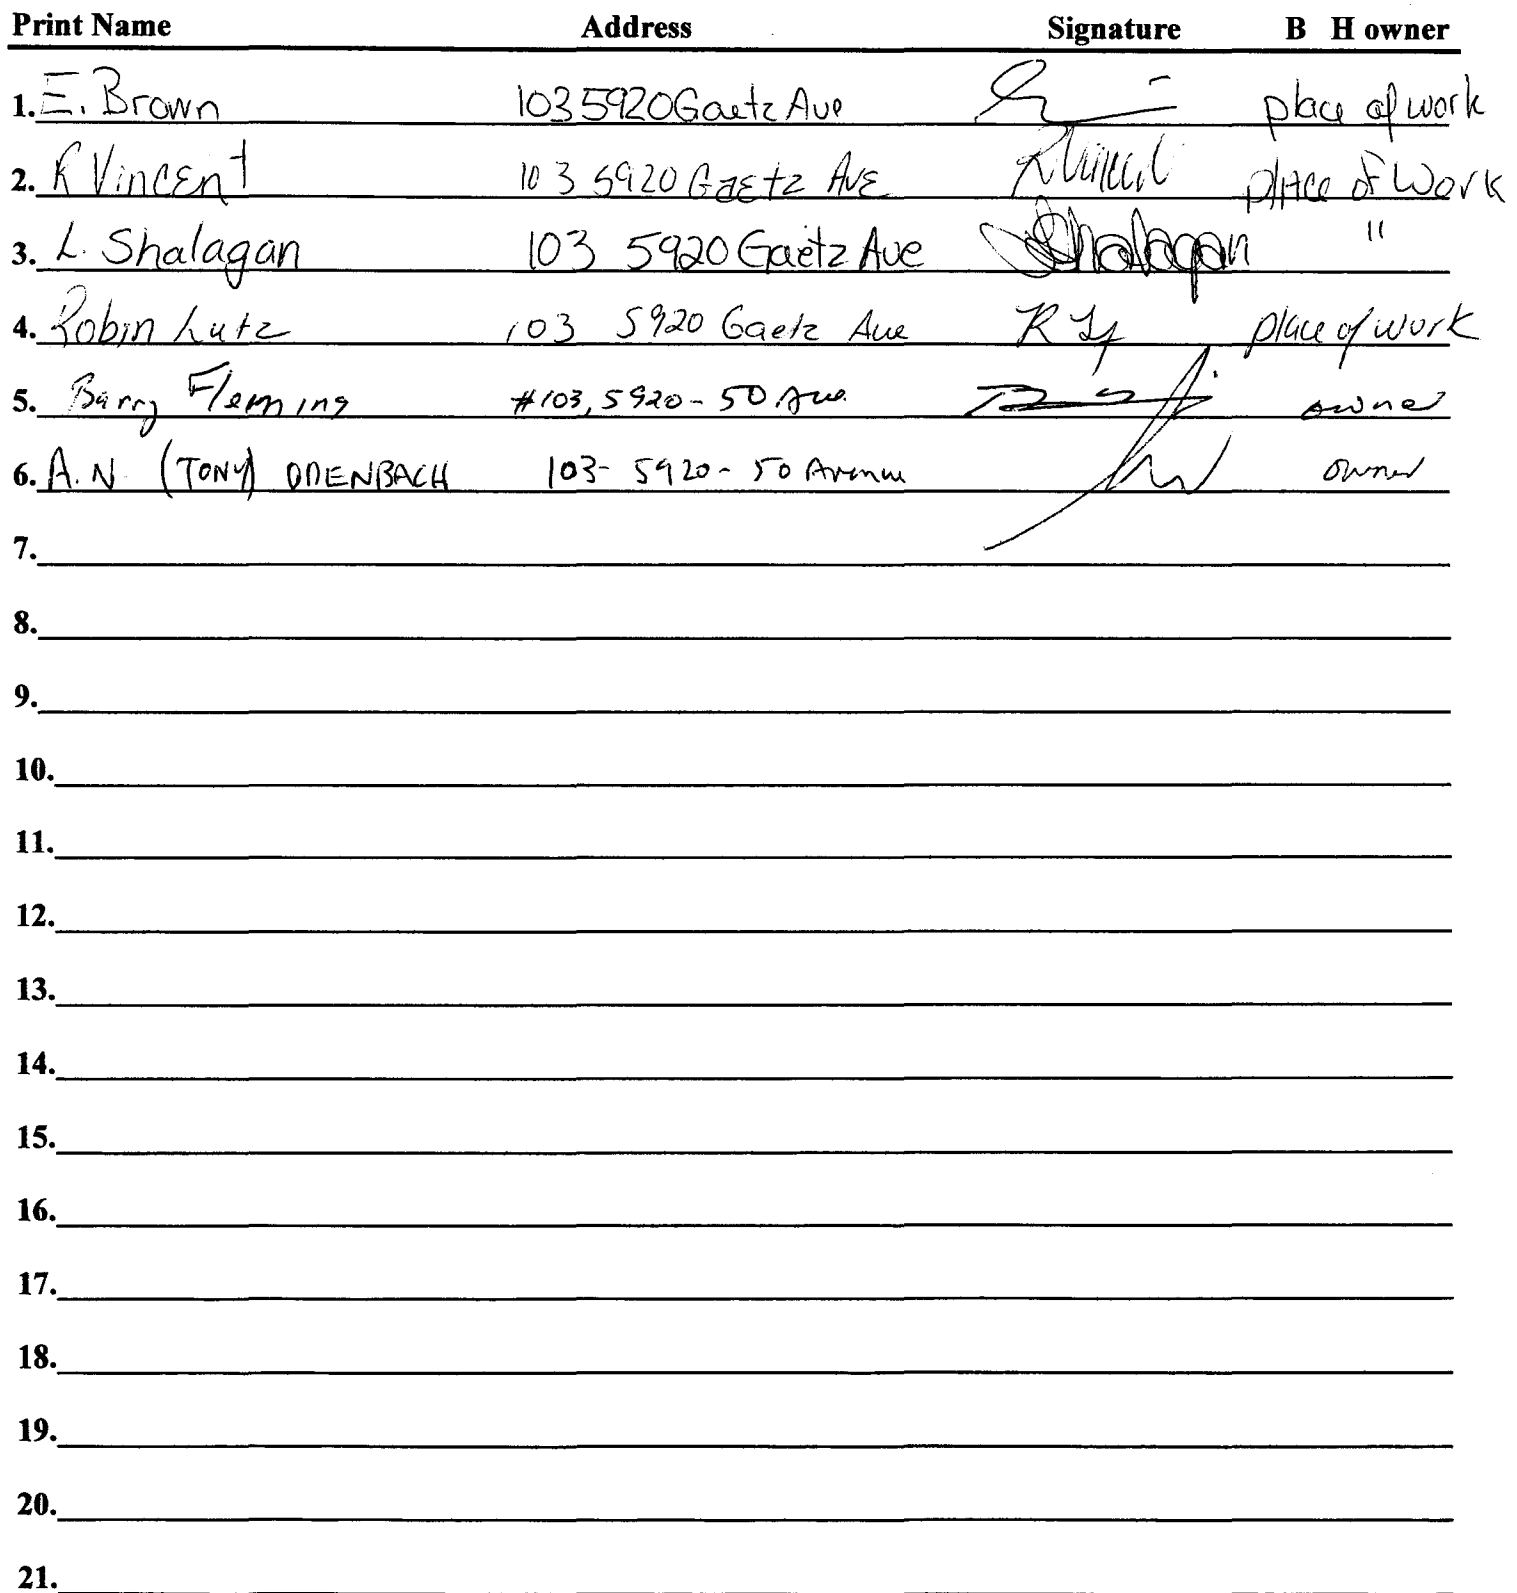 Print Name Address Signature B H owner
1. E. Brown 103 5920 Gaetz Ave place of work
2. R Vincent 103 5920 Gaetz Ave R Vincent place of Work
3. L. Shalagan 103 5920 Gaetz Ave Shalagan "
4. Robin Lutz 103 5920 Gaetz Ave place of work
5. Barry Fleming #103, 5920 - 50 Ave. owner
6. A.N. (TONY) ODENBACH 103- 5920 - 50 Avenue owner
7.
8.
9.
10.
11.
12.
13.
14.
15.
16.
17.
18.
19.
20.
21.